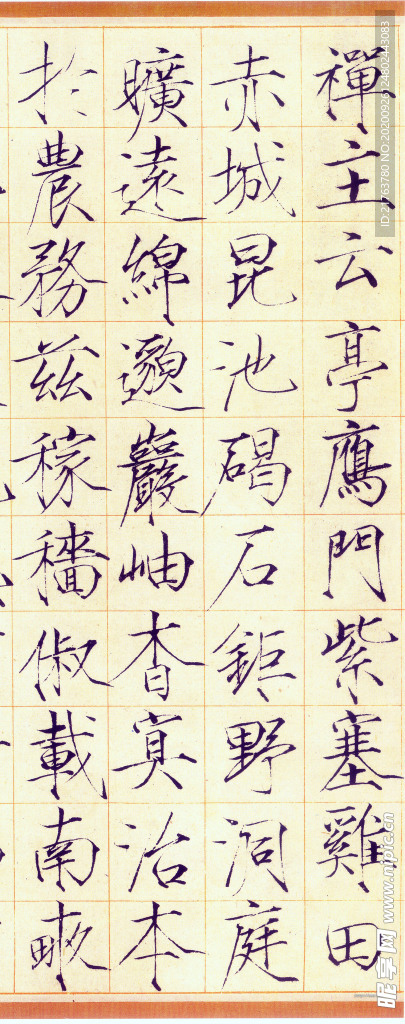 禪主云亭鴈門紫塞雞田
赤城昆池碣石鉅野洞庭
曠遠綿邈巖岫杳冥治本
於農務茲稼穡俶載南畝
ID:21763780 NO:20200926224802443083
昵享网 www.nipic.cn